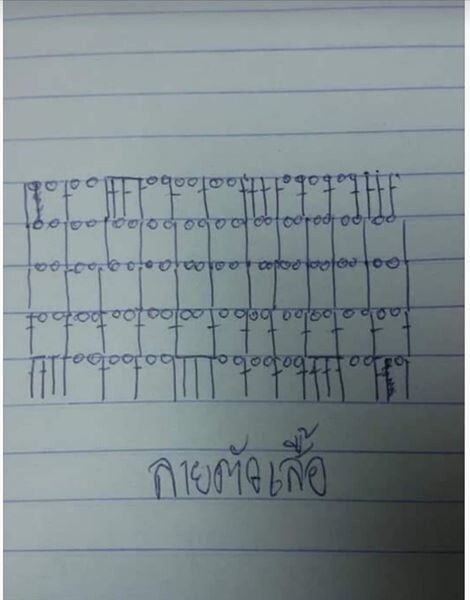 ลายตัวเสื้อ